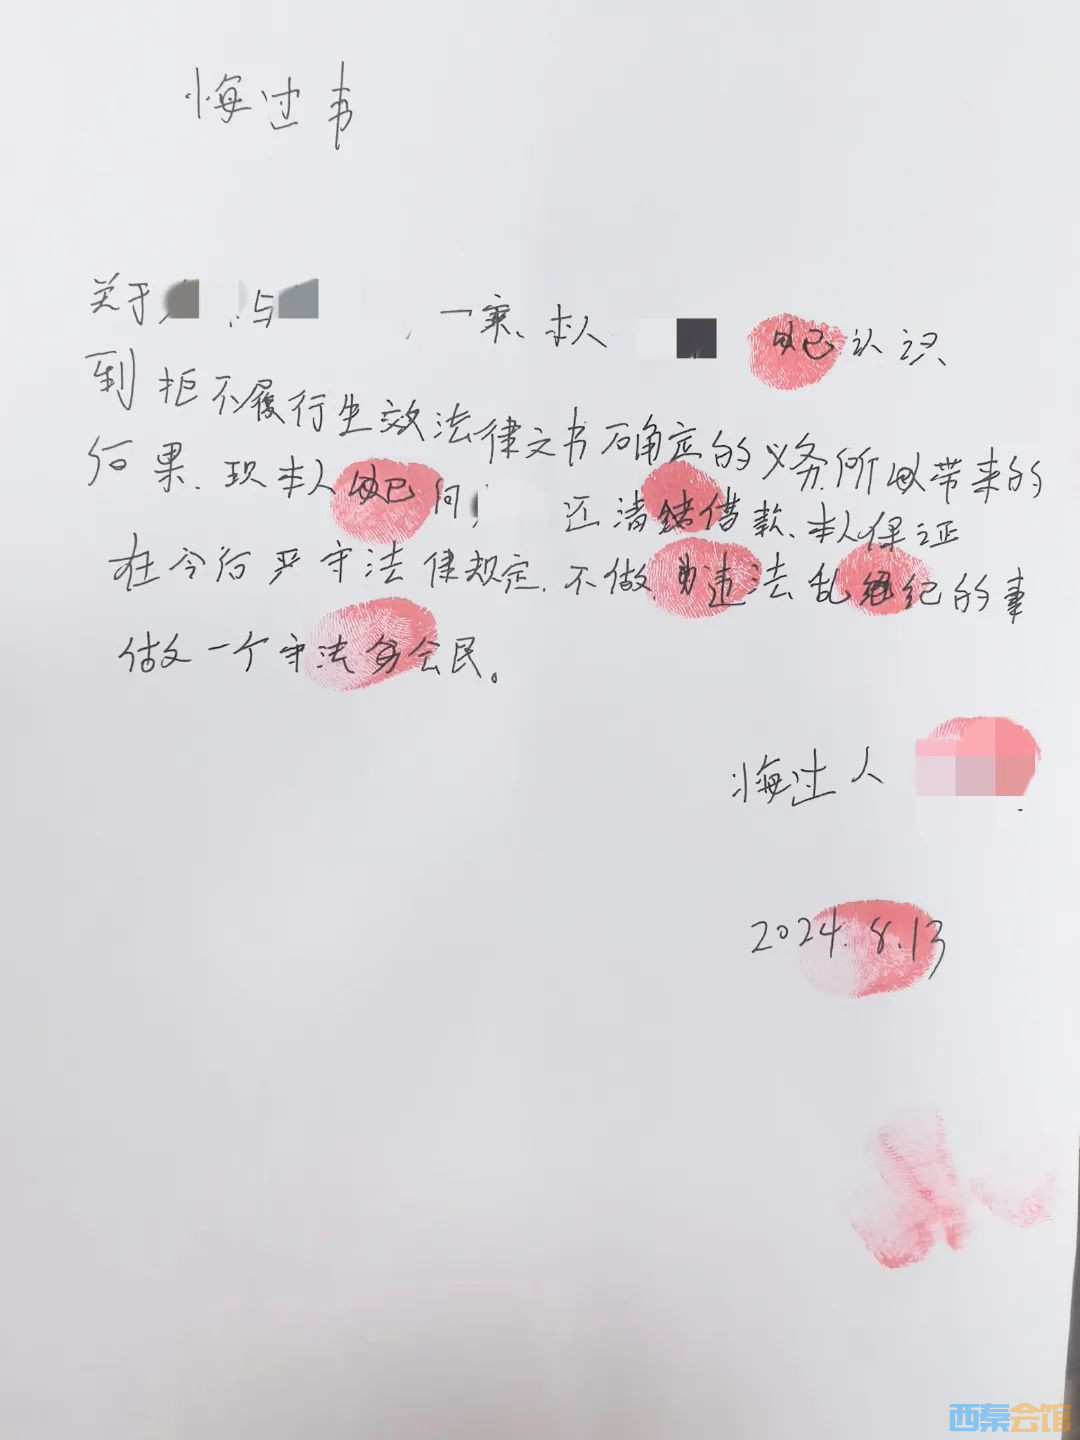 悔过书
关于 与 一案、本人 已认识
到拒不履行生效法律文书确定的义务所带来的
后果、现本人已向 还清结借款、本人保证
在今后严守法律规定、不做违法乱纪的事
做一个守法好公民。
悔过人
2024.8.13
西秦会馆